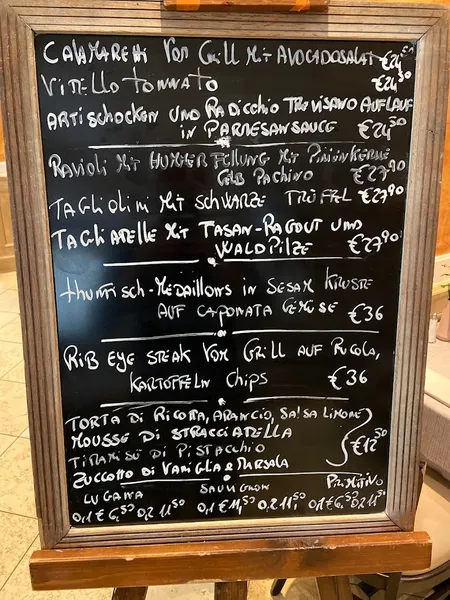 CALAMARETTI VOM GRILL MIT AVOCADOSALAT €24,50
VITELLO TONNATO €24,50
ARTISCHOCKEN UND RADICCHIO TREVISANO AUFLAUF
IN PARMESANSAUCE €24,50
RAVIOLI MIT HUMMER FÜLLUNG MIT PINIENKERNE
GELB PACHINO €27,90
TAGLIOLINI MIT SCHWARZE TRÜFFEL €27,90
TAGLIATELLE MIT FASAN-RAGOUT UND
WALDPILZE €27,90
THUNFISCH-MEDAILLONS IN SESAM KRUSTE
AUF CAPONATA GEMÜSE €36
RIB EYE STEAK VOM GRILL AUF RUCOLA,
KARTOFFELN CHIPS €36
TORTA DI RICOTTA, ARANCIO, SALSA LIMONE
MOUSSE DI STRACCIATELLA
TIRAMISÙ DI PISTACCHIO €12,50
ZUCCOTTO DI VANIGLIA E MARSALA
LUGANA SAUVIGNON PRIMITIVO
0,1 € 6,50 0,2 11,50 0,1 € 0,2 11,50 0,1 € 6,50 0,2 11,50